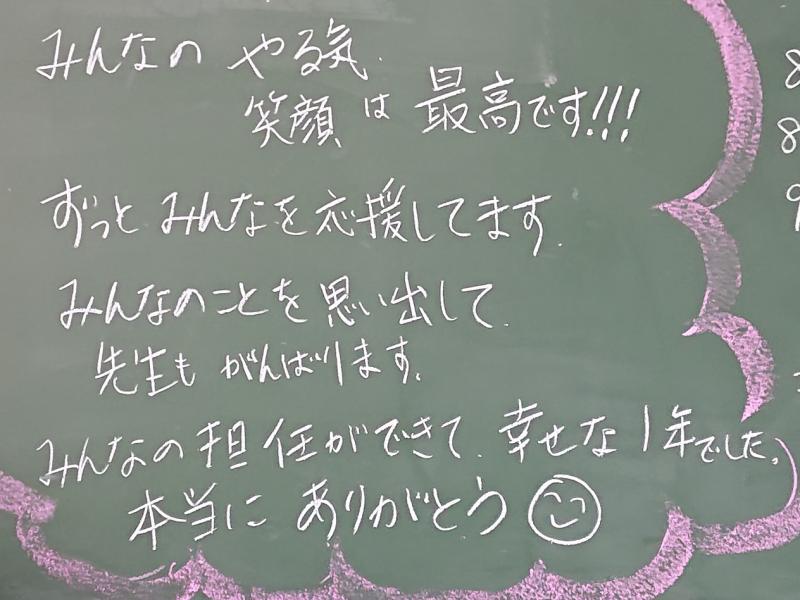 みんなの やる気、
笑顔は 最高です!!!
ずっと みんなを応援してます。
みんなのことを思い出して、
先生も がんばります。
みんなの担任ができて、幸せな1年でした。
本当に ありがとう